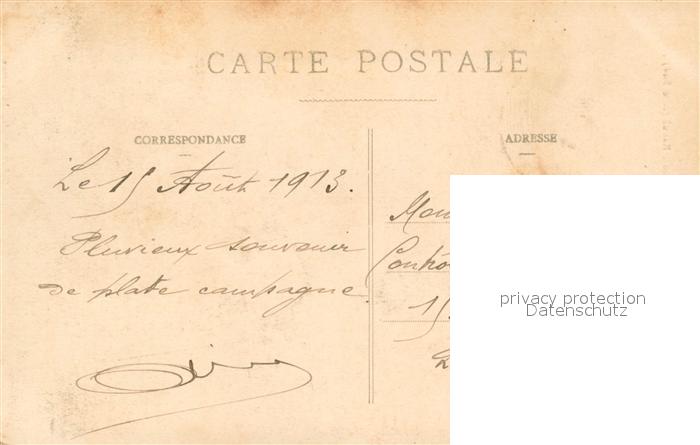 CARTE POSTALE
CORRESPONDANCE
ADRESSE
Le 15 Août 1913.
Pluvieux souvenir
de plate campagne
15
privacy protection
Datenschutz